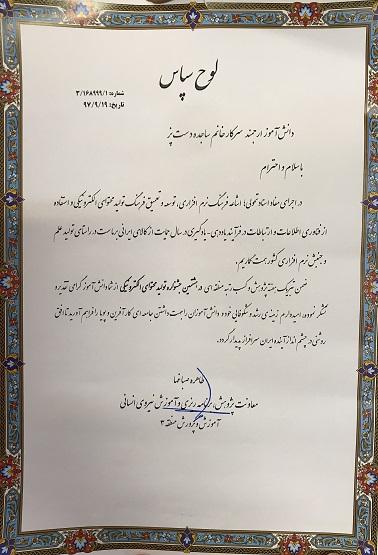 لوح سپاس
شماره: ۳/۱۶۸۹۹۹/۱
تاریخ: ۹۷/۹/۱۹
دانش آموز ارجمند سرکار خانم ساجده دست پز
با سلام و احترام
در اجرای مفاد اسناد تحولی؛ اشاعه فرهنگ نرم افزاری، توسعه و تعمیق فرهنگ تولید محتوای الکترونیکی و استفاده
از فناوری اطلاعات و ارتباطات در فرآیند یاددهی - یادگیری در سال حمایت از کالای ایرانی برماست در راستای تولید علم
و جنبش نرم افزاری کشور همت گماریم.
ضمن تبریک هفته پژوهش و کسب رتبه منطقه ای در هشتمین جشنواره تولید محتوای الکترونیکی از شما دانش آموز گرامی تقدیر و
تشکر نموده، امیدوارم زمینه ی رشد و شکوفایی خود و دانش آموزان را جهت داشتن جامعه ای کارآفرین و پویا فراهم آورید تا افق
روشنی در چشم انداز آینده ایران سرافراز پدیدار گردد.
طاهره صباغها
معاونت پژوهش، برنامه ریزی و آموزش نیروی انسانی
آموزش و پرورش منطقه ۳